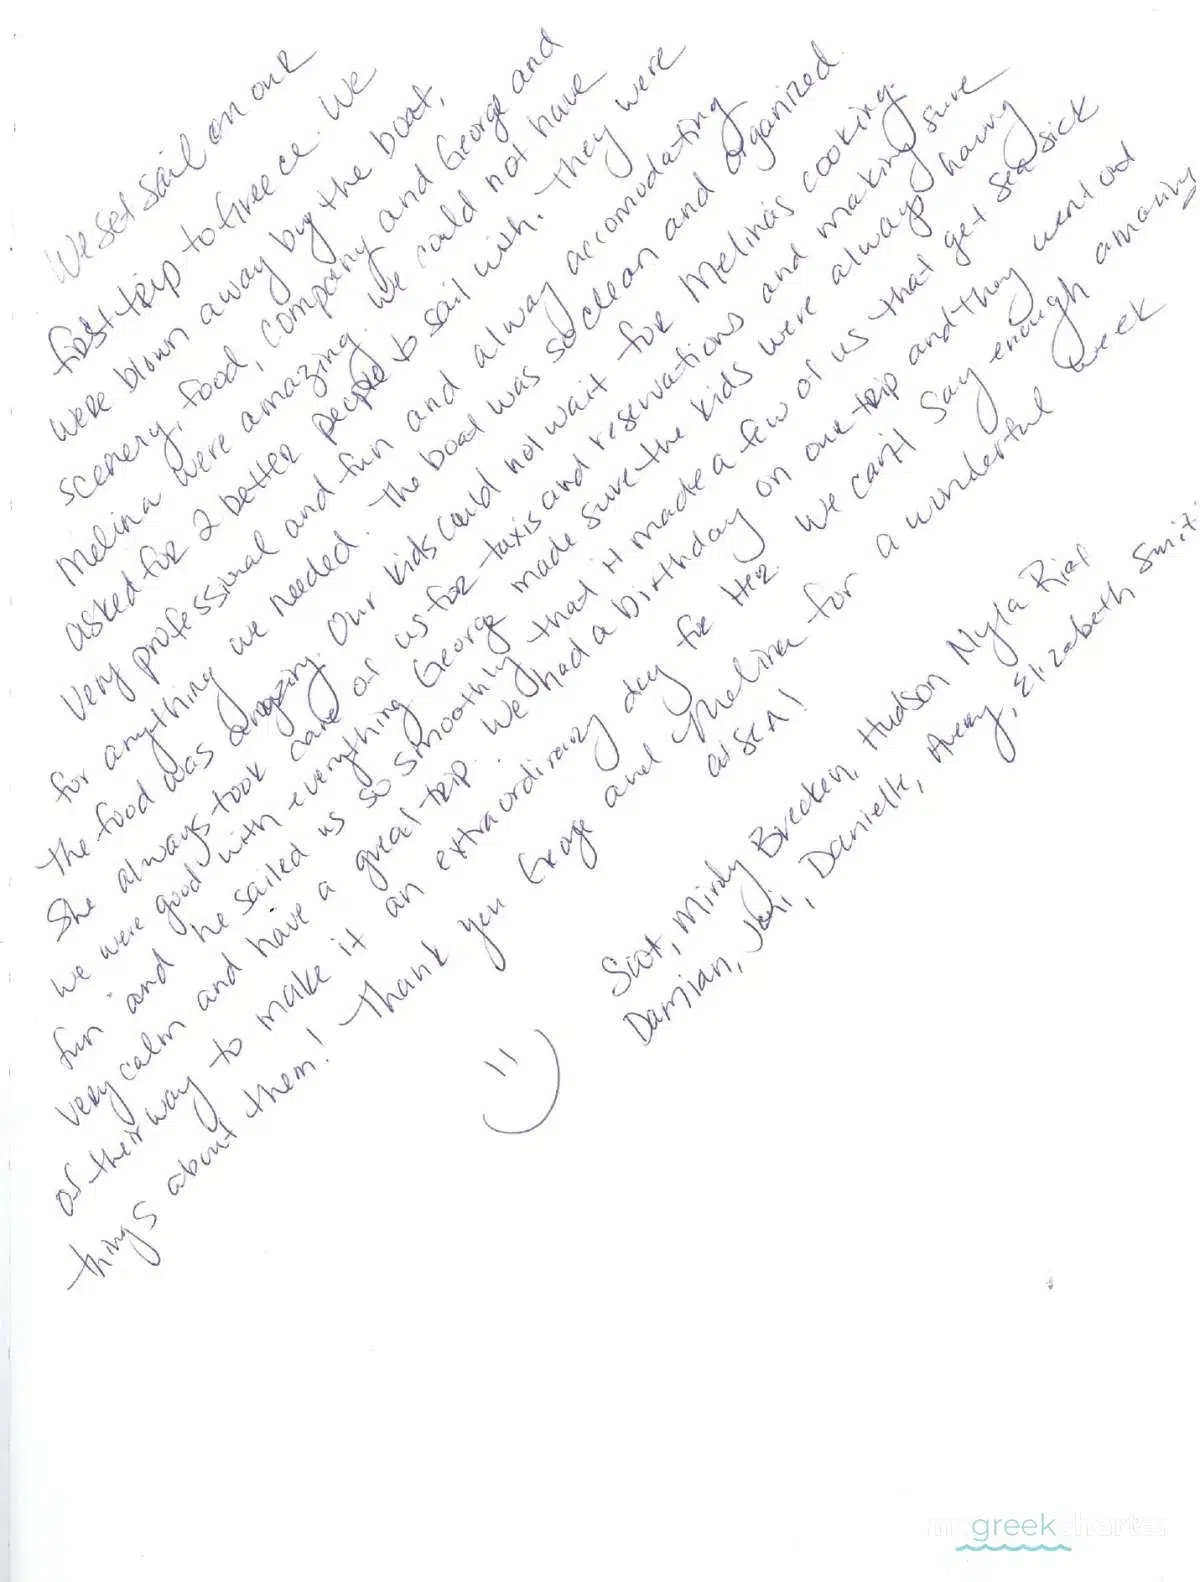 We set sail on our
first trip to Greece. We
were blown away by the boat,
scenery, food, company and George and
Melina were amazing. We could not have
asked for 2 better people to sail with. They were
very professional and fun and always accomodating
for anything we needed. The boat was so clean and organized.
The food was amazing. Our kids could not wait for Melina's cooking.
She always took care of us for taxis and reservations and making sure
we were good with everything. George made sure the kids were always having
fun and he sailed us so smoothly that it made a few of us that get sea sick
very calm and have a great trip. We had a birthday on our trip and they went out
of their way to make it an extraordinary day for her. We can't say enough amazing
things about them! Thank you George and Melina for a wonderful week
at SEA!
Scot, Mindy Brecken, Hudson Nyla Rief
Damian, Joni, Danielle, Avery, Elizabeth Smit
my greek charter